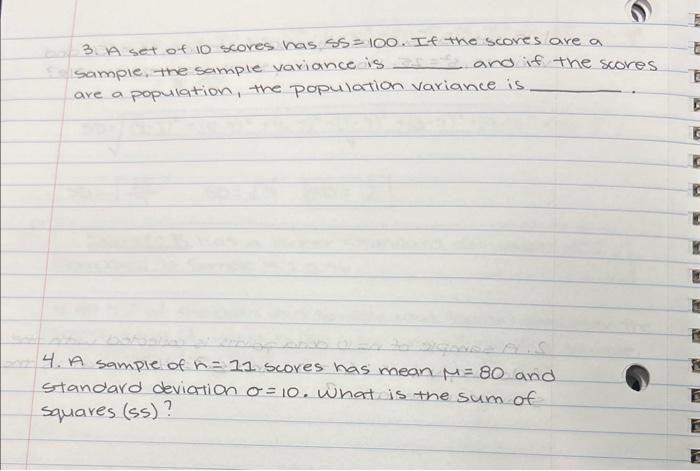 3. A set of 10 scores has SS=100. If the scores are a
sample, the sample variance is ______ and if the scores
are a population, the population variance is ________.
4. A sample of n = 11 scores has mean μ= 80 and
standard deviation σ=10. What is the sum of
squares (SS)?